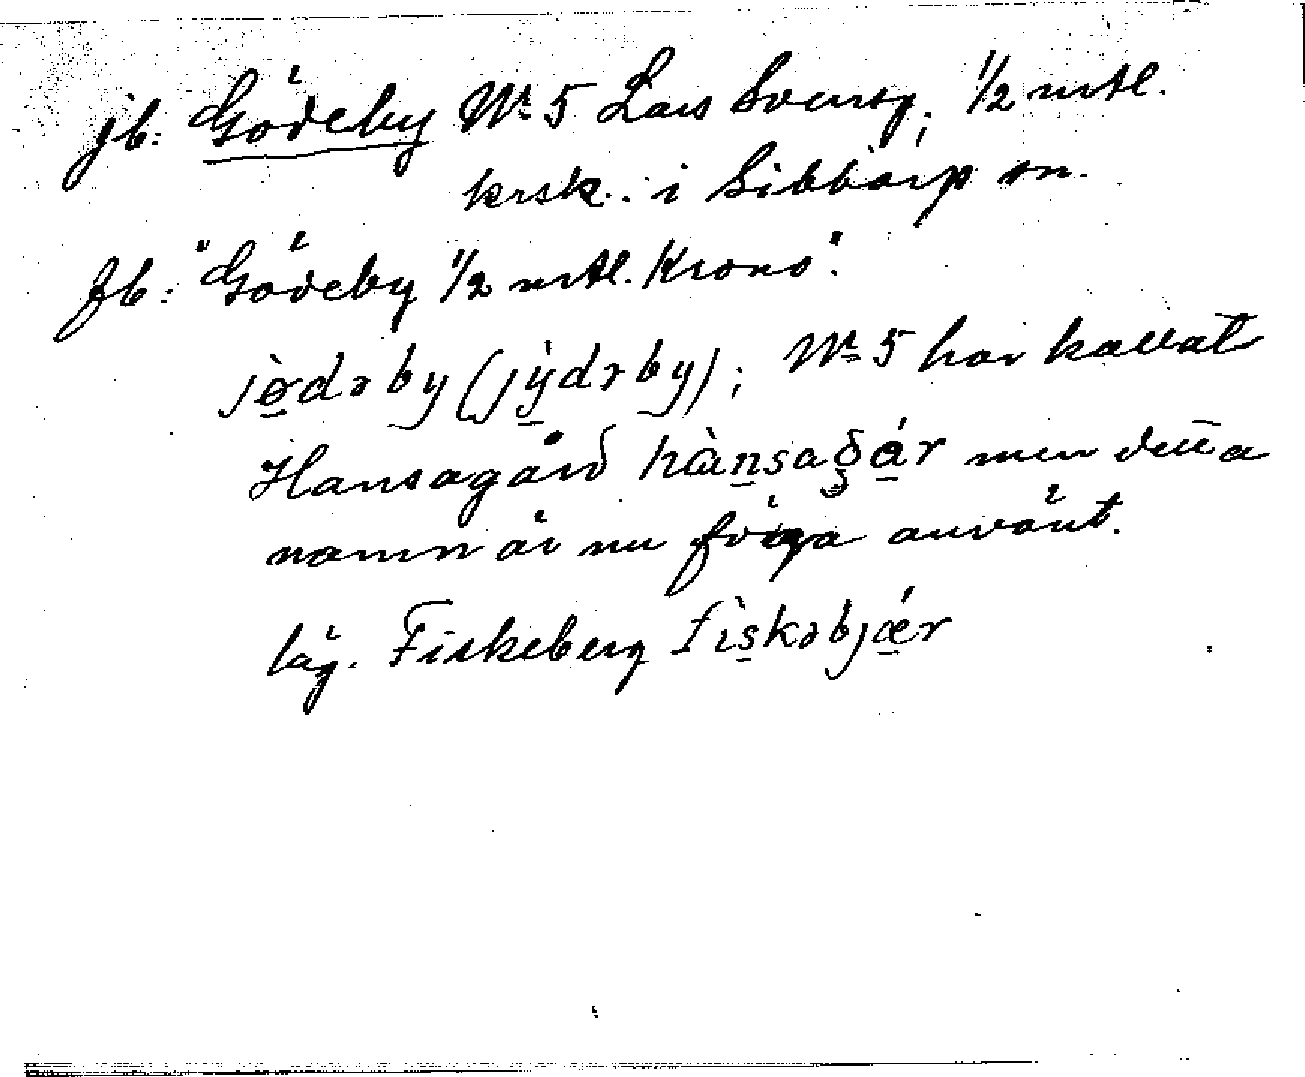 jb: Gödeby No 5 Lars Svensg; 1/2 mtl.
krsk. i Sibbarp sn.
fb: "Gödeby 1/2 mtl. Krono".
jø̀dəby (jỳdəby); No 5 har kallat
Hansagård hànsagár men detta
namn är nu föga använt.
läg. Fiskeberg fìskəbjǽr